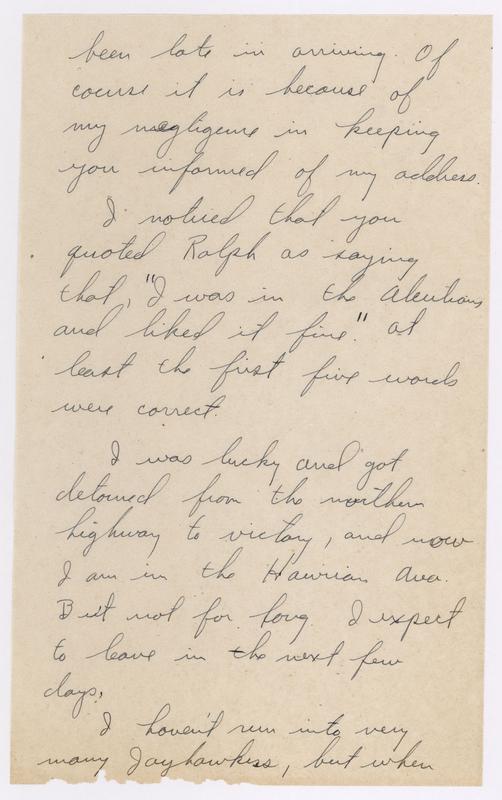 been late in arriving. Of
course it is because of
my negligence in keeping
you informed of my address.
I noticed that you
quoted Ralph as saying
that, "I was in the Aleutians
and liked it fine." at
least the first five words
were correct.
I was lucky and got
detoured from the northern
highway to victory, and now
I am in the Hawiian Area.
But not for long. I expect
to leave in the next few
days.
I haven't run into very
many Jayhawkers, but when